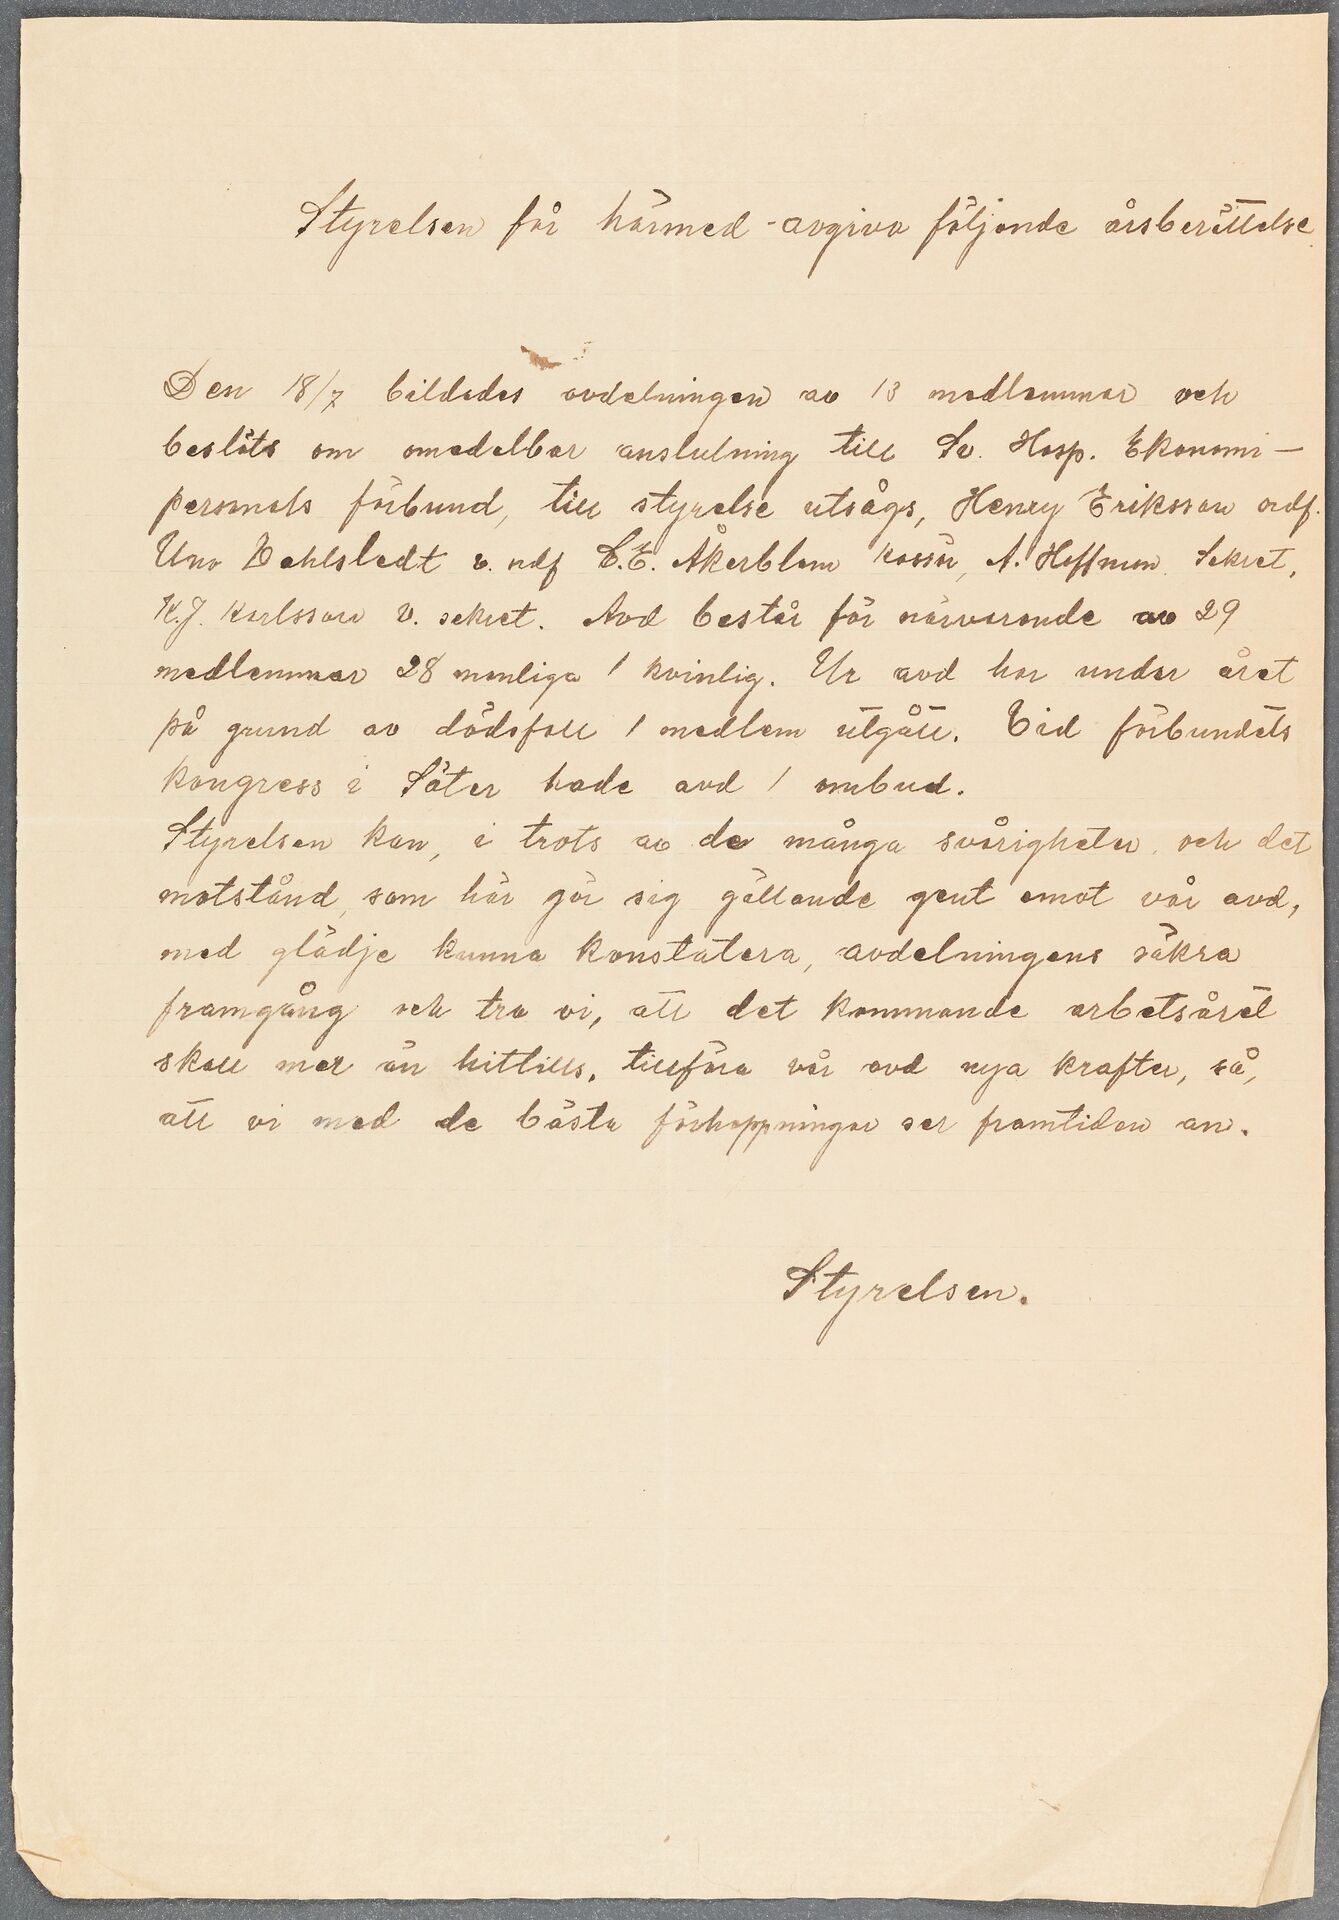 Styrelsen får härmed avgiva följande årsberättelse
Den 18/7 bildades avdelningen av 13 medlemmar och
beslöts om omedelbar anslutning till Sv. Hosp. Ekonomi-
personals förbund, till styrelse utsågs, Henry Eriksson ordf.
Uno Dahlstedt v. ordf E.E. Åkerblom kassör, A. Hoffman Sekret,
K.J. Karlsson V. sekret. Avd består för närvarande av 29
medlemmar 28 manliga 1 kvinlig. Ur avd har under året
på grund av dödsfall 1 medlem utgått. Vid förbundets
kongress i Säter hade avd 1 ombud.
Styrelsen kan, i trots av de många svårigheter, och det
motstånd, som här gör sig gällande gent emot vår avd,
med glädje kunna konstatera, avdelningens säkra
framgång och tro vi, att det kommande arbetsåret
skall mer än hittills, tillföra vår avd nya krafter, så,
att vi med de bästa förhoppningar ser framtiden an.
Styrelsen.